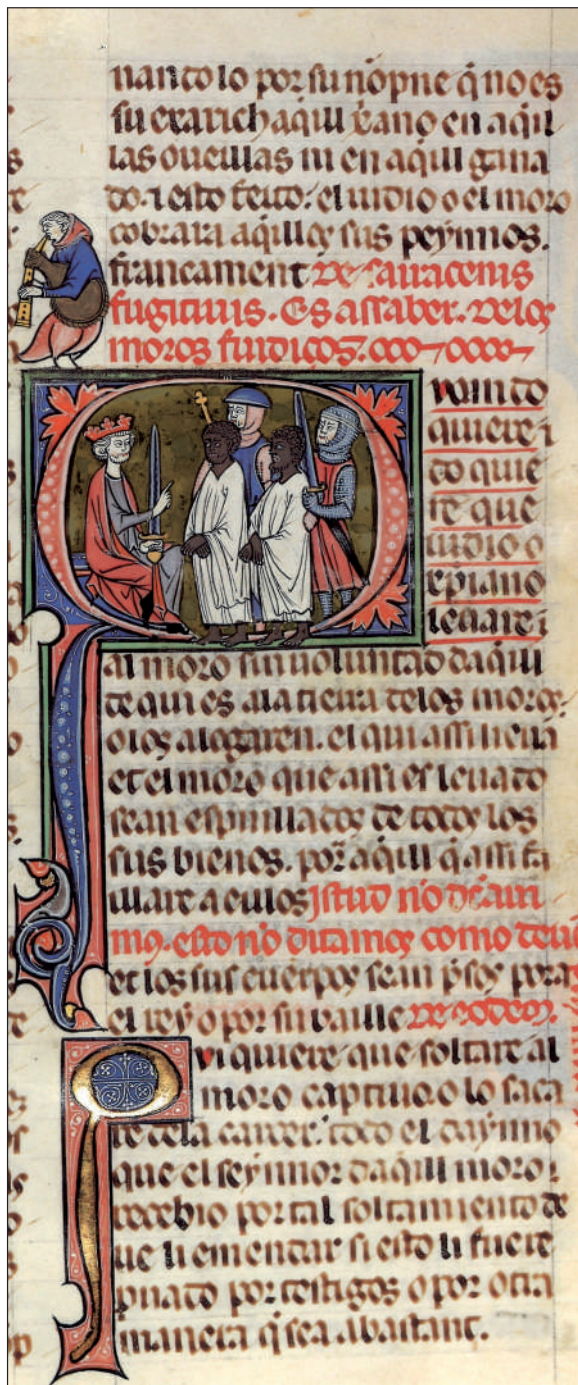 nando lo por su nōpne q̄ no es
su exarich aqill xano en aqil
las oueillas ni en aqill gana
do. ⁊ esto feito: el iudio o el moro
cobrara aqillos sus peynnos.
francament De sarracenis
fugitiuis. Es assaber. Delos
moros fuidiços.
uando
quiere ⁊
do quie
re que
iudio o
xp̄iano
leuare ⁊
al moro sin uoluntad daqui
de qui es ala tierra delos moros.
olos alogaren. el qui assi lieua
et el moro que assi es leuado
sean espuillados de todos los
sus bienes. por aqill q̄ assi fa
illare a eillos Istud nō
esto nō ditamos como
et los sus cuerpos sean p̄sos pora
el rey o por su baille De eodem.
ui quiere que soltare al
moro captiuo. o lo saca
re dela carcer. todo el daynno
que el seynnor daqill moro ⁊
recebio por tal soltamiento de
ue li emendar si esto li fuere
puado por testigos o por otra
manera q̄ sea abastant.